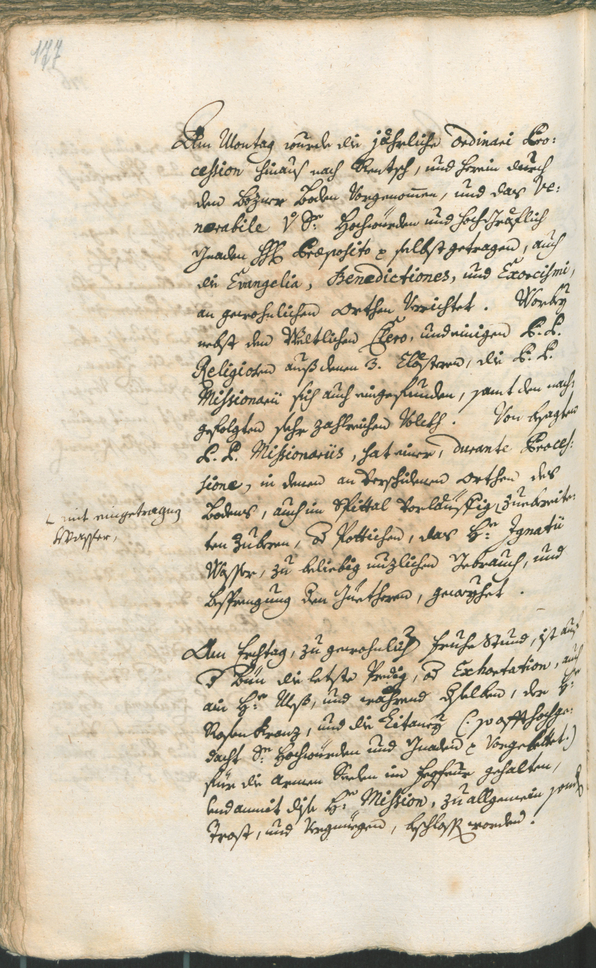 177
Am Montag wurde die jährliche Ordinari Pro:
cession hinaus nach Rentsch, und herein durch
den Bozner Boden Vorgenommen, und das Ve:
nerabile V Sr Hochwürden und Hochgräflich
Gnaden HH Præposito selbst getragen, auch
die Evangelia, Benedictiones, und Exorcismi,
an gewohnlichen Orthen Verrichtet. Worbey
nebst den Weltlichen Clero, und einigen P. P.
Religiosen auß denen 3. Clöstern, die P. P.
Missionarii sich auch eingefunden, samt den nach:
gefolgten sehr zahlreichen Volckh. Von besagten
P. P. Missionariis, hat einer, durante Proces:
sione, in denen an Verschidenen Orthen des
Bodens, auch im Spittal Vorläuffig Zuebereite:
mit eingetragnen
Wasser,
ten Zubern, Pottichen, das Hr Ignatii
Wasser, zu beliebig nuzlichen Gebrauch, und
Besprengung den Güetheren, geweyhet.
Am Erchtag, zu gewohnlich fruhe Stund, ist auf
d Bün die letste Predig, Exhortation, auch
ain Hr Meß, und während derselben, der Hr
Rosen Kranz, und die Litaney (:
dacht Sr Hochwürden und Gnaden Vorgebettet:)
für die armen Seelen im Fegfeur gehalten,
und annit dise Hr Mission, zu allgemein
Trost, und Vergnügen, beschloss worden.